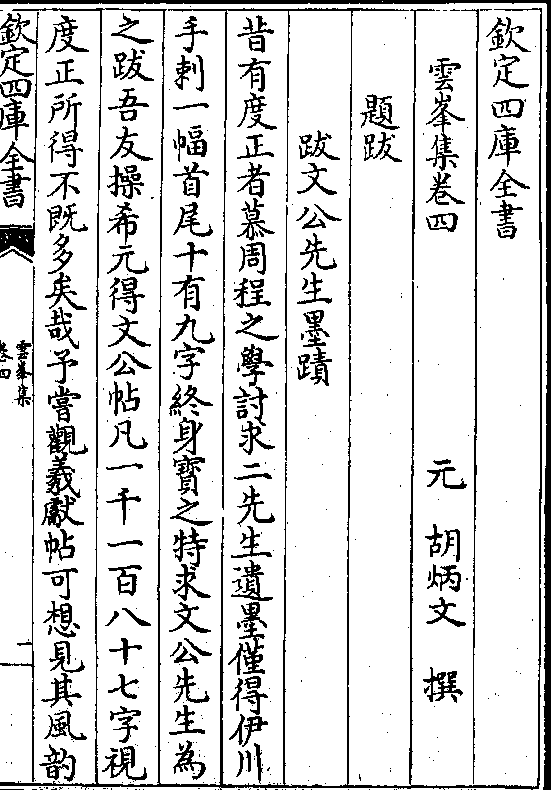 欽定四庫全書
雲峯集卷四
元 胡炳文 撰
題跋
跋文公先生墨蹟
昔有度正者慕周程之學討求二先生遺墨僅得伊川
手刺一幅首尾十有九字終身寶之特求文公先生為
之跋吾友操希元得文公帖凡一千一百八十七字視
度正所得不既多矣哉予嘗觀羲獻帖可想見其風韵
欽定四庫全書
雲峯集
卷四
一